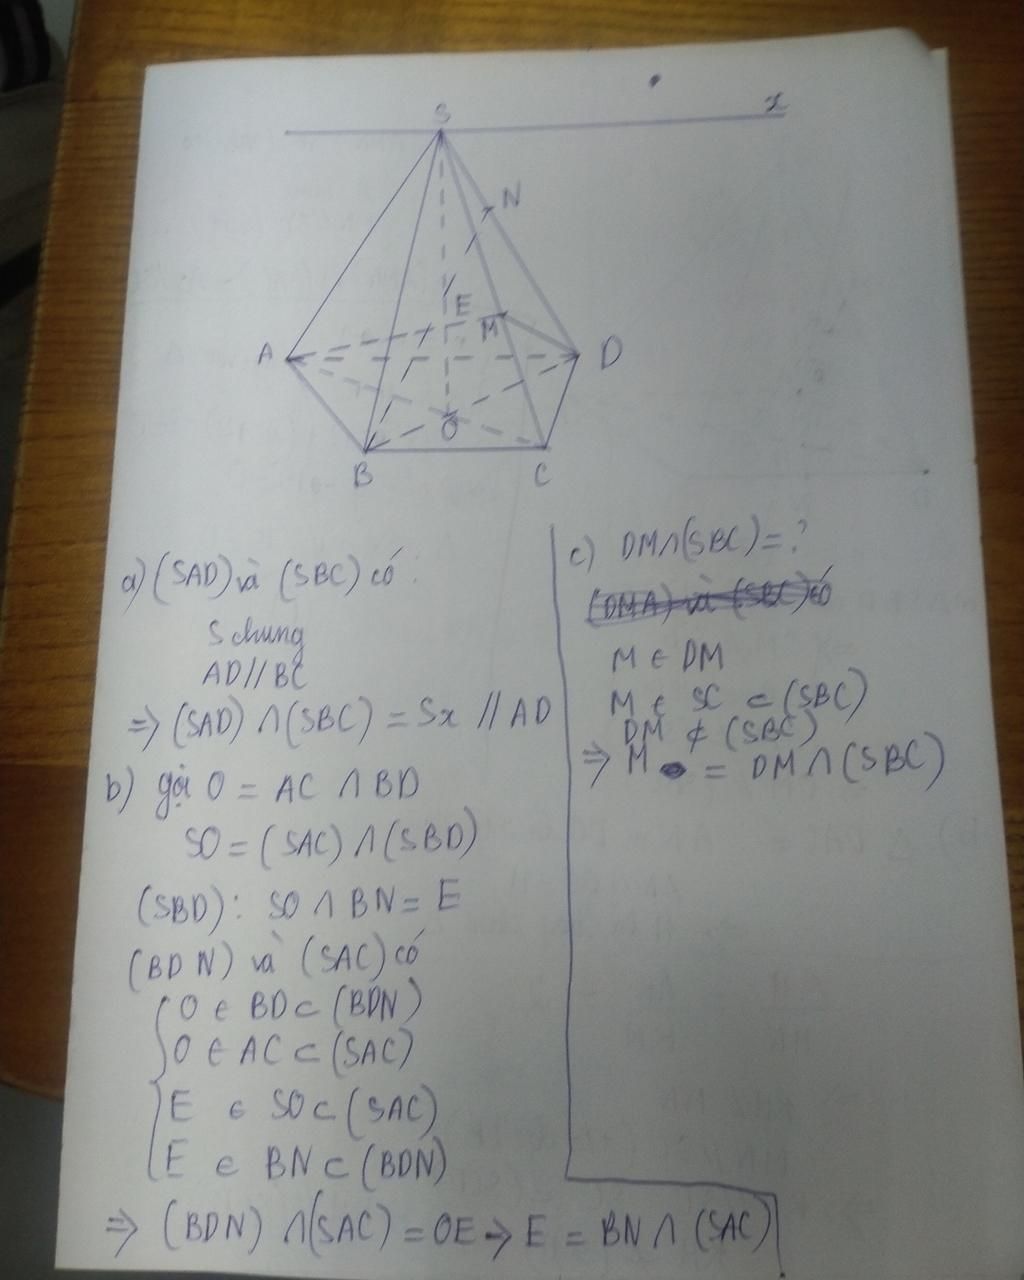 S
x
N
E
M
A
D
O
B
C
a) (SAD) và (SBC) có :
S chung
AD // BC
=> (SAD) ∩ (SBC) = Sx // AD
b) gọi O = AC ∩ BD
SO = (SAC) ∩ (SBD)
(SBD): SO ∩ BN = E
(BDN) và (SAC) có
O ∈ BD ⊂ (BDN)
O ∈ AC ⊂ (SAC)
E ∈ SO ⊂ (SAC)
E ∈ BN ⊂ (BDN)
=> (BDN) ∩ (SAC) = OE → E = BN ∩ (SAC)
c) DM ∩ (SBC) = ?
(DMA) và (SBC) có
M ∈ DM
M ∈ SC ⊂ (SBC)
DM ⊄ (SBC)
=> M = DM ∩ (SBC)